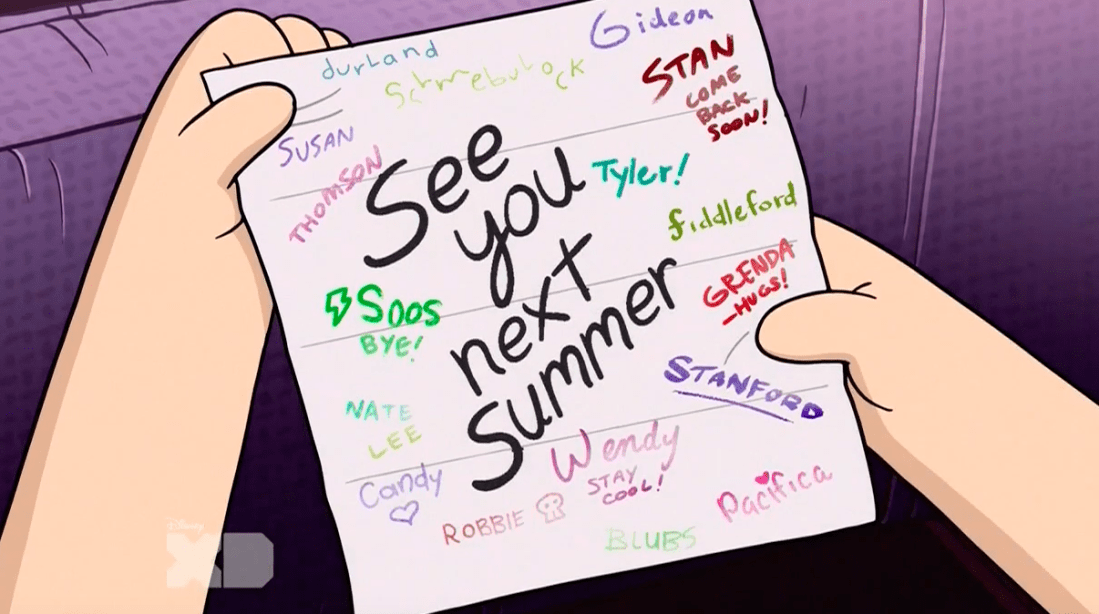 durland
Gideon
Schmebulock
STAN
COME
BACK
SOON!
SUSAN
THOMSON
See
you
next
summer
Tyler!
fiddleford
GRENDA
-HUGS!
SOOS
BYE!
STANFORD
NATE
LEE
Wendy
STAY
COOL!
Candy
Pacifica
ROBBIE
BLUBS
Disney
XD